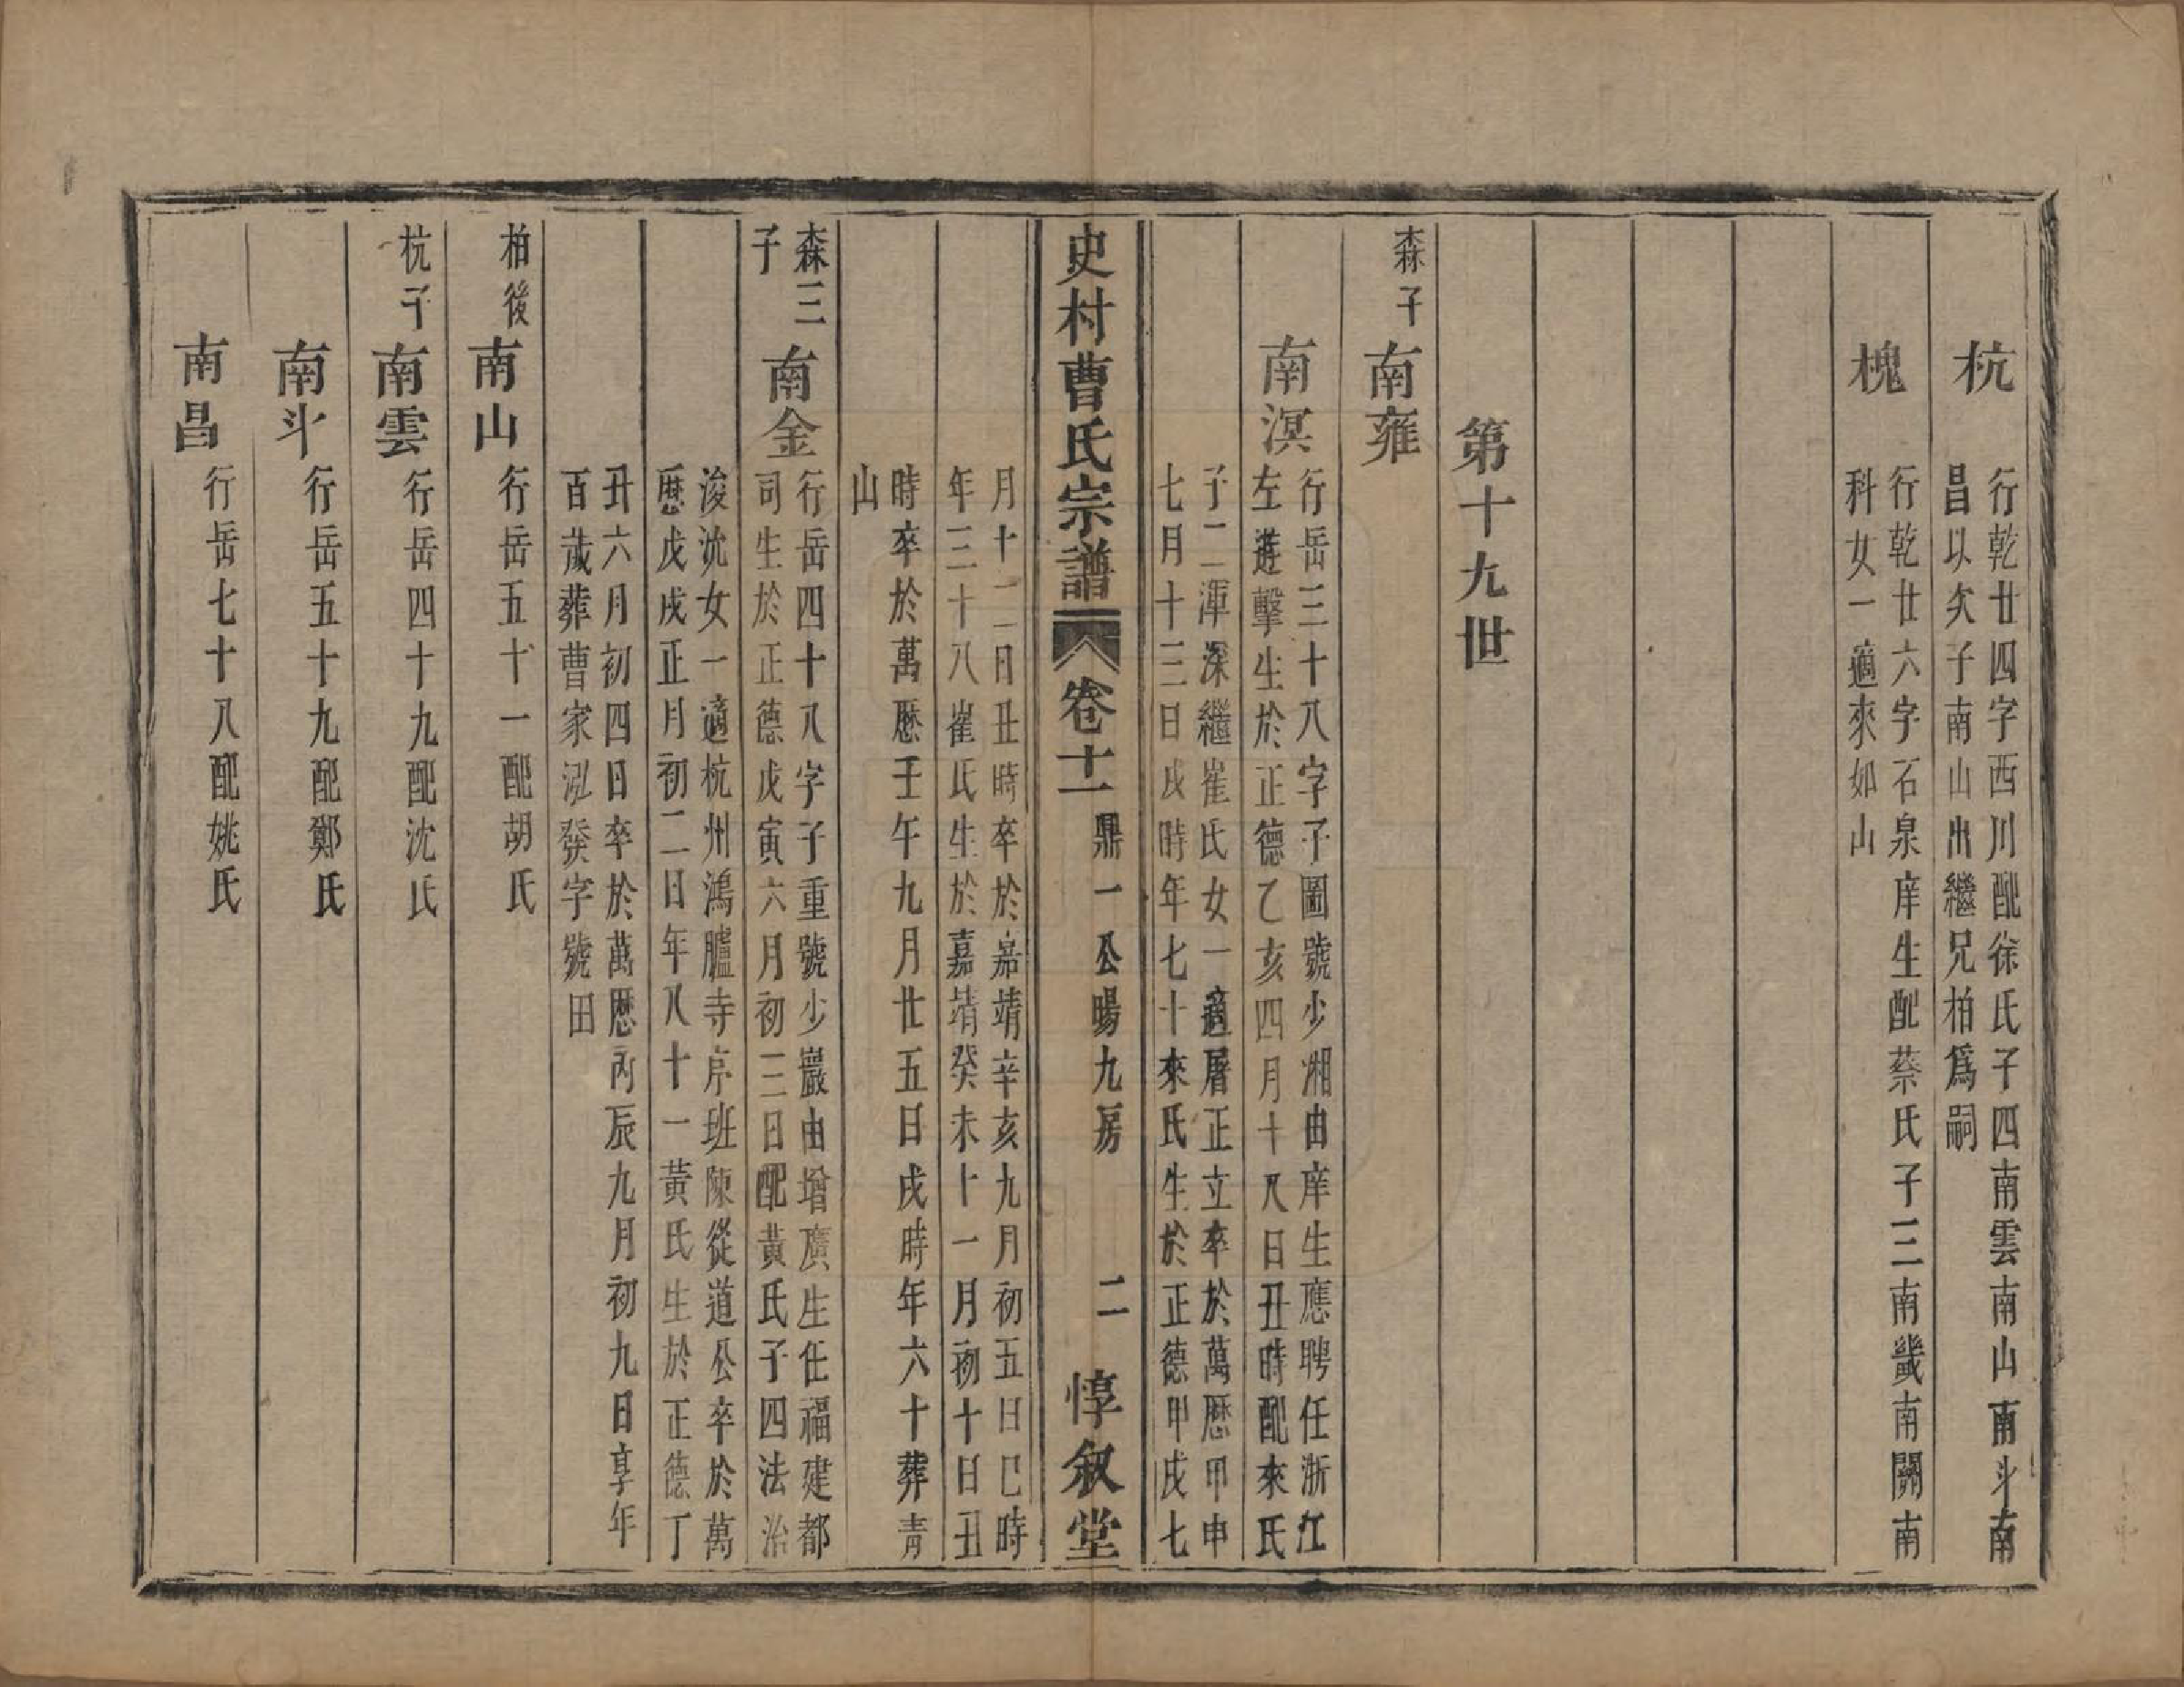 杭
行乾廿四字西川配徐氏子四南雲南山南斗南
昌以矢子南山出繼兄柏爲嗣
槐
行乾廿六字石泉庠生配蔡氏子三南畿南關南
科女一適來如山
第十九世
森子
南雍
南溟
行岳三十八字子圖號少湘由庠生應聘任浙江
左遊擊生於正德乙亥四月十八日丑時配來氏
子二渾深繼崔氏女一適屠正立卒於萬歷甲申
七月十三日戌時年七十來氏生於正德甲戌七
史村曹氏宗譜
卷十一
鼎一公暘九房
二
惇敘堂
月十二日丑時卒於嘉靖辛亥九月初五日巳時
年三十八崔氏生於嘉靖癸未十一月初十日丑
時卒於萬歷壬午九月廿五日戌時年六十葬青
山
森三
子
南金
行岳四十八字子重號少巖由增廣生任福建都
司生於正德戊寅六月初三日配黃氏子四法治
浚沈女一適杭州鴻臚寺序班陳從道公卒於萬
歷戊戌正月初二日年八十一黃氏生於正德丁
丑六月初四日卒於萬歷丙辰九月初九日享年
百歲葬曹家泓癸字號田
柏後
南山
行岳五十一配胡氏
杭子
南雲
行岳四十九配沈氏
南斗
行岳五十九配鄭氏
南昌
行岳七十八配姚氏